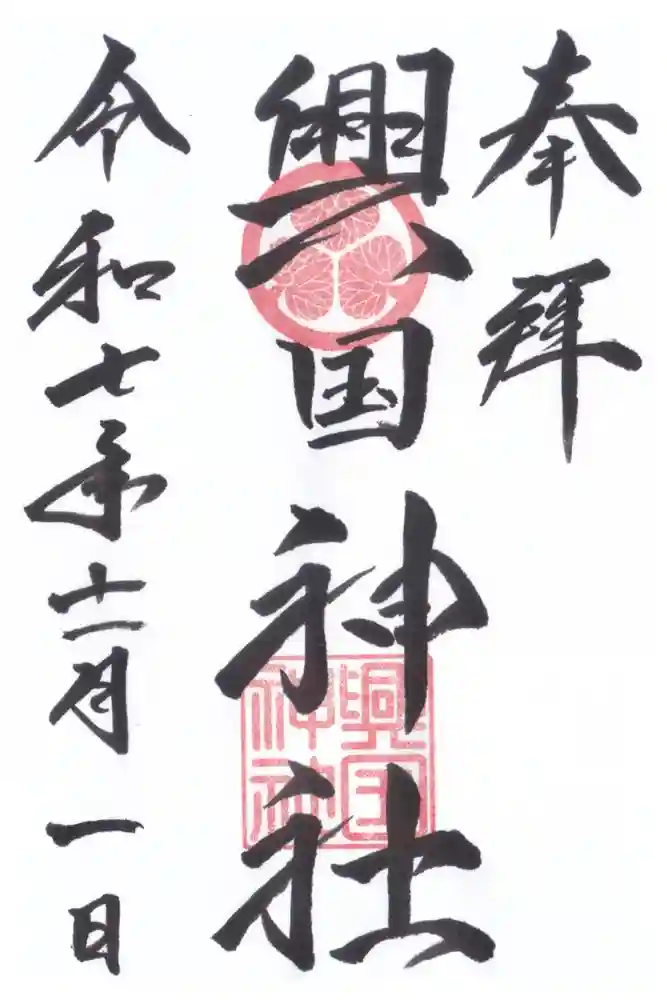 奉拝
興国神社
興国
神社
令和七年十一月一日